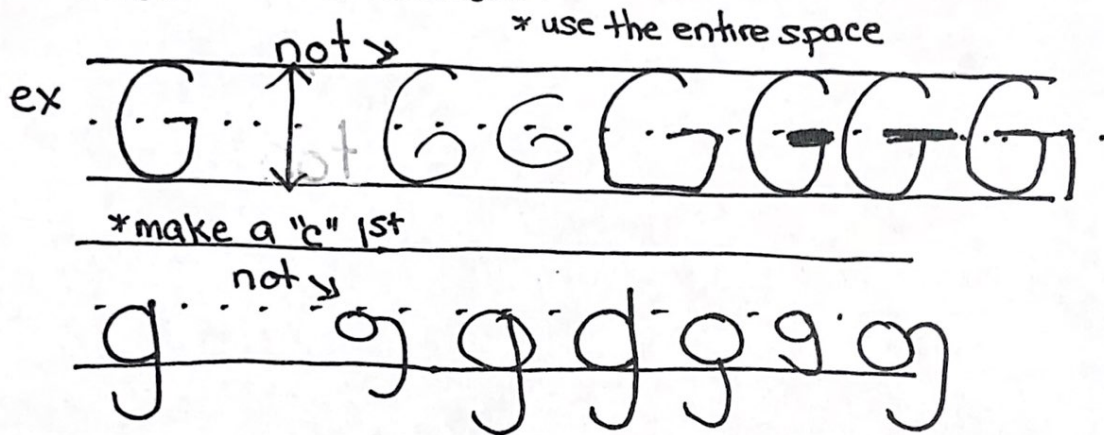 not → * use the entire space
ex G G G G G G G
* make a "c" 1st
not ↘
g g g g g g g